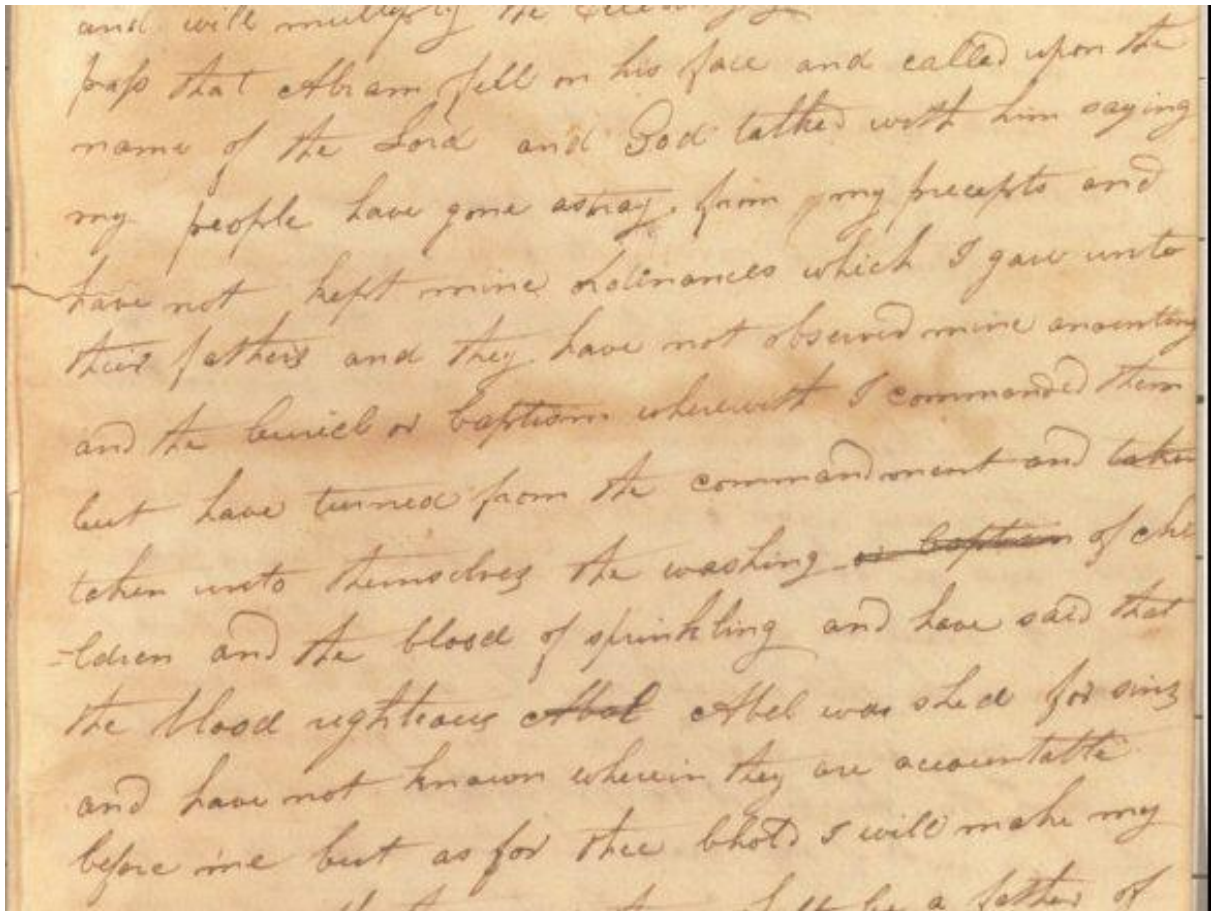 and will multiply the
pass that Abram fell on his face and called upon the
name of the Lord and God talked with him saying
my people have gone astray. from my precepts and
have not kept mine ordinances which I gave unto
their fathers and they have not observed mine anointing
and the buriel or baptism wherewith I commanded them
but have turned from the commandment and taken
taken unto themselves the washing or baptism of chi
-ldren and the blood of sprinkling and have said that
the blood righteous Abel Abel was shed for sins
and have not known wherein they are accountable
before me but as for thee bhold I will make my
be a father of